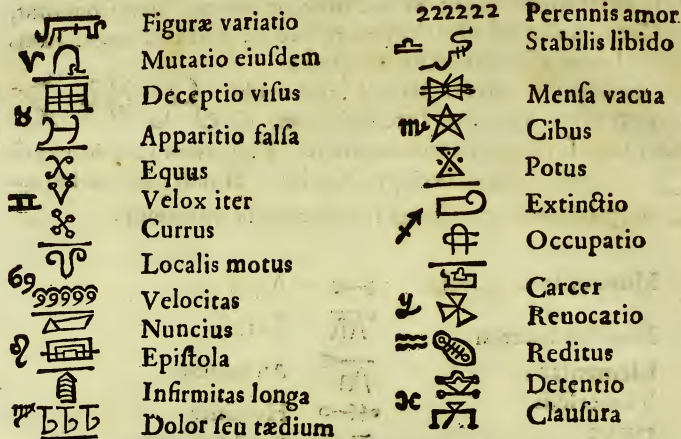 Figuræ variatio
Mutatio eiuſdem
Deceptio viſus
Apparitio falſa
Equus
Velox iter
Currus
Localis motus
Velocitas
Nuncius
Epiſtola
Infirmitas longa
Dolor ſeu tædium
222222 Perennis amor
Stabilis libido
Menſa vacua
Cibus
Potus
Extinctio
Occupatio
Carcer
Reuocatio
Reditus
Detentio
Clauſura